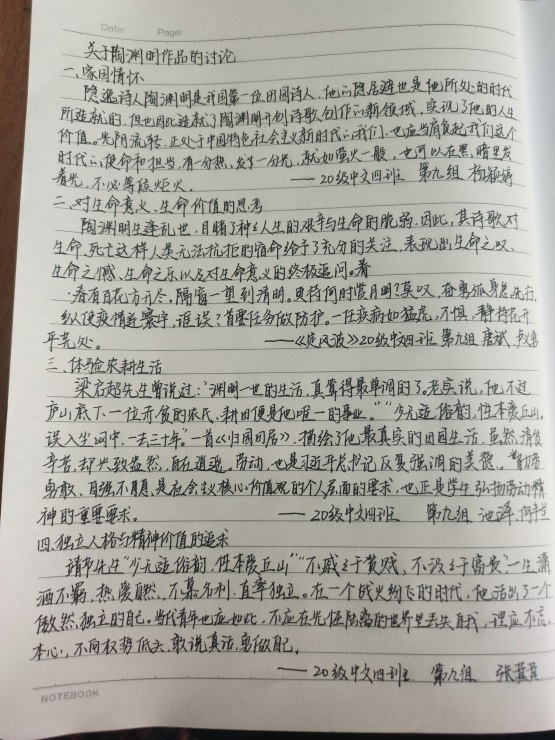 Date: Page:
关于陶渊明作品的讨论
一、家国情怀
隐逸诗人陶渊明是我国第一位田园诗人，他的隐居避世是他所处的时代
所造就的，但也因此造就了陶渊明开创诗歌创作的新领域，实现了他的人生
价值。光阴流转，正处于中国特色社会主义新时代的我们，也应当肩负起我们这个
时代的使命和担当，有一分热，发一分光，就如萤火一般，也可以在黑暗里发
着光，不必等候炬火。
——20级中文四班 第九组 杨颖婷
二、对生命意义、生命价值的思考
陶渊明生逢乱世，目睹了种种人生的艰辛与生命的脆弱，因此，其诗歌对
生命、死亡这样人类无法抗拒的宿命给予了充分的关注，表现出生命之叹、
生命之憾、生命之乐以及对生命意义的终极追问。看
春有百花方开尽，隔窗一望到清明。更待何时赏月明？莫叹，奋勇孤身总先行，
纵使疫情速寰宇，谁误？首要任务做防护。一任疾病如猛虎，不惧，静待花开
平芜处。
——《定风波》20级中文四班 第九组 唐斌
三、体验农耕生活
梁启超先生曾说过：“渊明一世的生活，真算得最单调的了。老实说，他不过
庐山底下一位赤贫的农民，耕田便是他唯一的事业。”“少无适俗韵，性本爱丘山。
误入尘网中，一去三十年。”一首《归园田居》，描绘了他最真实的田园生活，虽然清贫
辛苦，却兴致盎然，自在逍遥。劳动，也是习近平总书记反复强调的美德。“勤劳
勇敢、自强不息”是社会主义核心价值观的个人层面的要求，也正是学生弘扬劳动精
神的重要要求。
——20级中文四班 第九组 池泽、何
四、独立人格与精神价值的追求
靖节先生“少无适俗韵，性本爱丘山”“不戚戚于贫贱，不汲汲于富贵”一生潇
洒不羁，热爱自然，不慕名利，直率独立。在一个战火纷飞的时代，他活出了一个
傲然、独立的自己。当代青年也应如此，不应在光怪陆离的世界里丢失自我，理应不忘
本心，不向权势低头，敢说真话，勇做自己。
——20级中文四班 第九组 张
NOTEBOOK